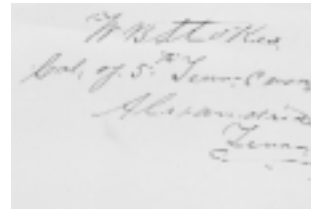 W B Stokes
Col. of 5th Tenn. Cav
Alexandria
Tenn